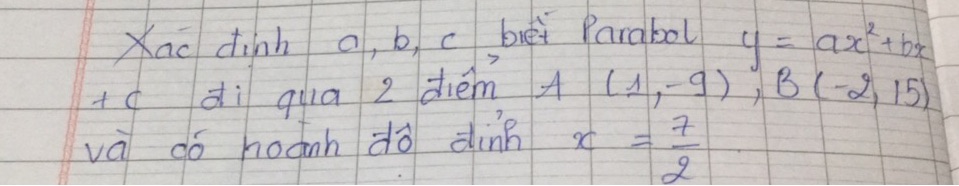 Xác định a, b, c biết Parabol y = ax² + bx
+ c đi qua 2 điểm A (1, -9), B (-2, 15)
và có hoành độ đỉnh x = 7/2